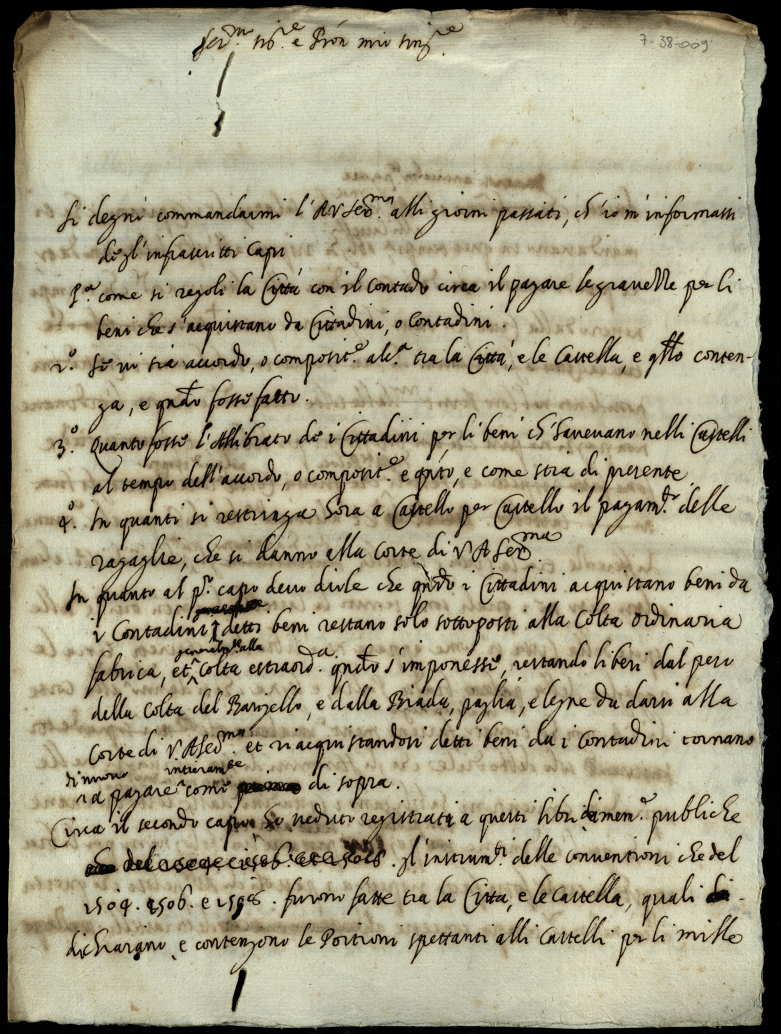 Ser.mo Sig.re e Pron mio Sing.re
7-38-009
Si degnò commandarmi l'A V Ser.ma alli giorni passati, ch'io m'informassi
degl'infrascritti Capi
P.o come si regoli la Città con il Contado circa il pagare le gravezze per li
beni che s'acquistano da Cittadini, o Contadini.
2.o Se vi sia accordo, o composit.e alc.a tra la Città, e le Castella, e q.llo conten-
ga, e q.ndo fosse fatto.
3.o Quanto fosse l'Allibrato de i Cittadini per li beni ch'havevano nelli Castelli
al tempo dell'accordo, o composit.e e q.nto, e come stia di presente
4.o In quanti si restringa hora a Castello per Castello il pagam.to delle
ragaglie, che si danno alla Corte di V A Ser.ma
In quanto al p.o capo devo dirle che q.ndo i Cittadini acquistano beni da
i Contadini detti beni restano solo sottoposti alla Colta ordinaria
general.te alla
fabrica, et colta estraord.a q.ndo s'imponesse, restando liberi dal peso
della Colta del Bargello, e dalla Biada, paglia, e legne da darsi alla
Corte di V. A Ser.ma et riacquistandosi detti beni da i Contadini tornano
di nuovo intieram.te
a pagare come di sopra.
Circa il secondo capo ho veduto registrati a questi libri di mem.e publiche
gl'instrum.ti delle conventioni che del
1504. 1506. e 1508. furono fatte tra la Città, e le Castella, quali
dichiarano, e contengono le Portioni spettanti alli Castelli per li mille